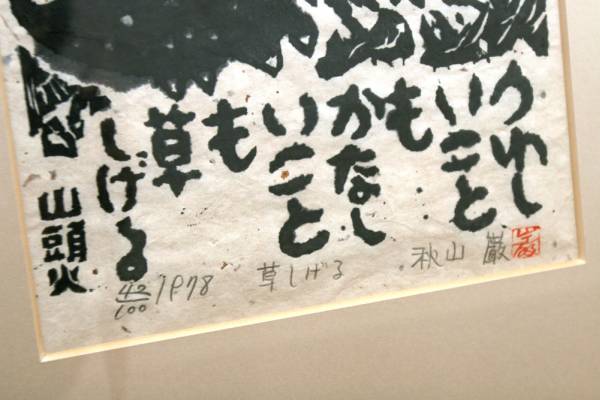 うれし
いこと
も
かなし
いこと
も
草
しげる
山頭火
42/100 1978 草しげる 秋山 巌